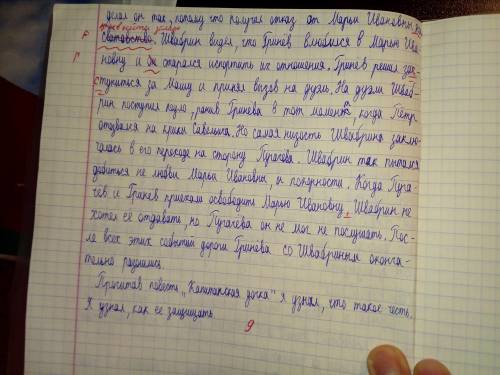 делал он так, потому что получил отказ от Марьи Ивановны на
сватовство. Швабрин видел, что Гринев влюбился в Марью Ива
новну и он старался испортить их отношения. Гринев решил зас-
ступиться за Машу и принял вызов на дуэль. На дуэли Шваб-
рин поступил подло, ранив Гринева в тот момент, когда Пётр
отозвался на крики Савельича. Но самая низость Швабрина заклю-
чалась в его переходе на сторону Пугачева. Швабрин так пытался
добиться не любви Марьи Ивановны, а покорности. Когда Пуга-
чев и Гринев приехали освободить Марью Ивановну, Швабрин не
хотел её отдавать, но Пугачёва он не мог не послушать. Пос-
ле всех этих событий дороги Гринёва со Швабриным оконча-
тельно разошлись.
Прочитав повесть "Капитанская дочка" я узнал, что такое честь.
Я узнал, как её защищать
9